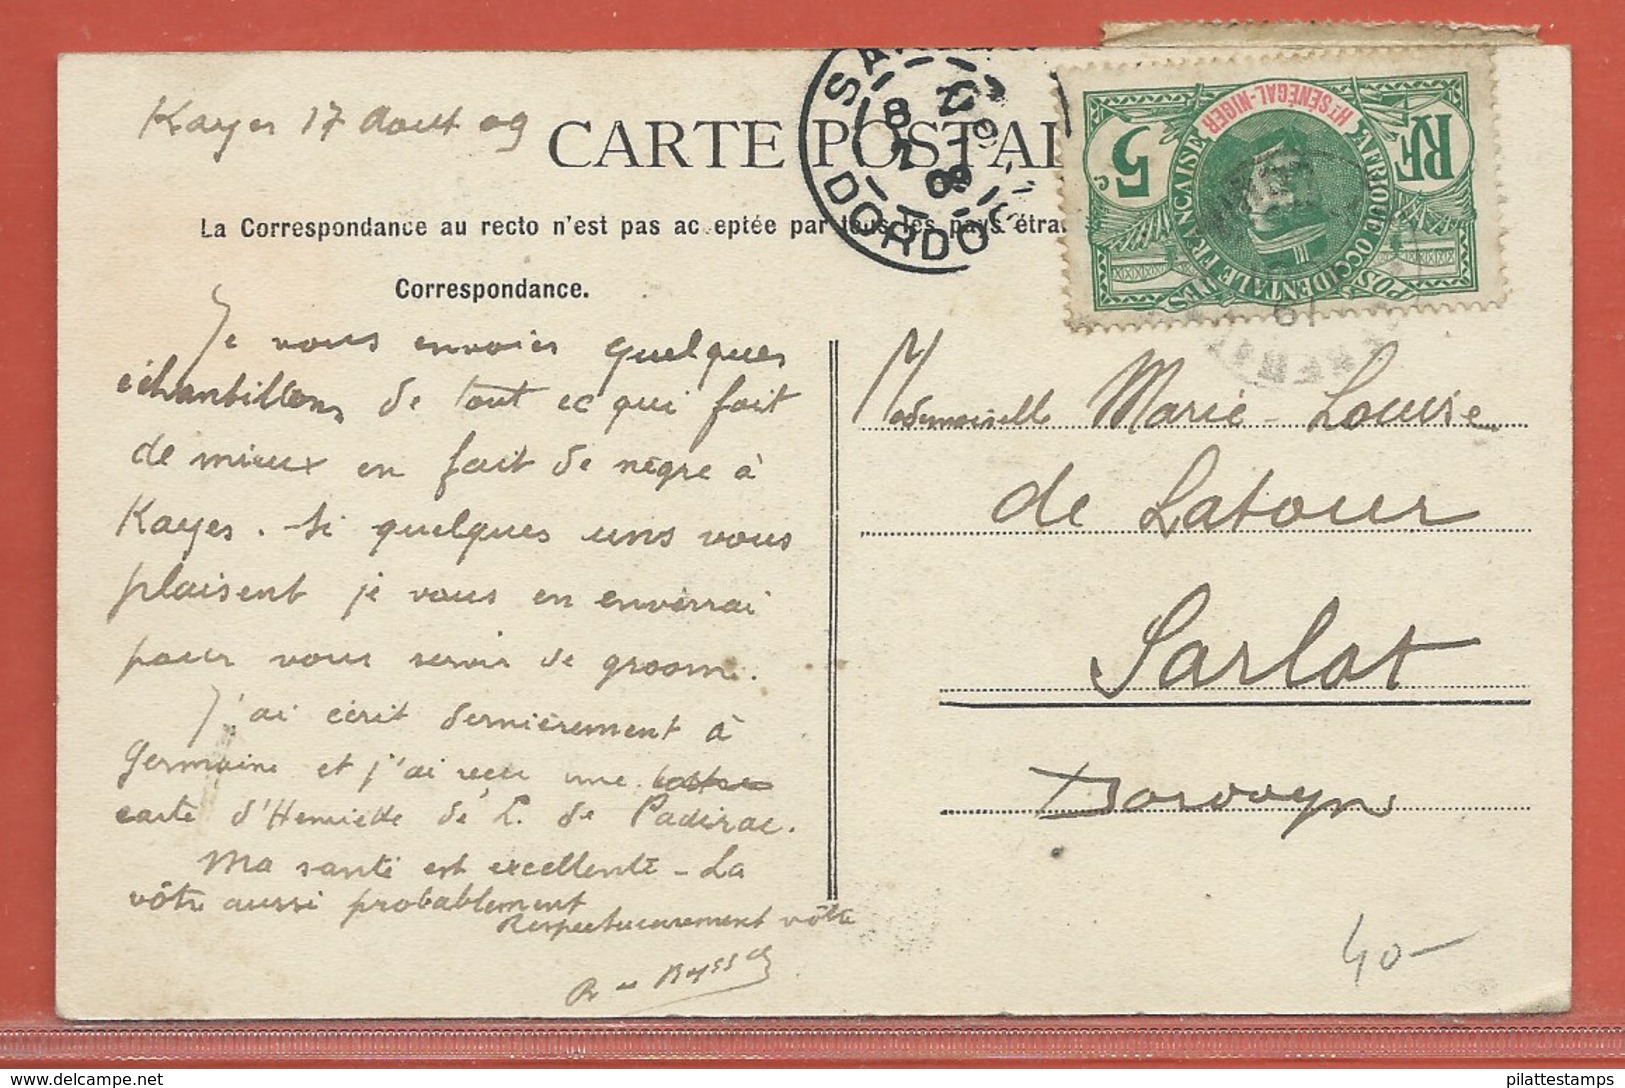 Kayes 17 Aout 09
CARTE POSTAL
La Correspondance au recto n'est pas ac eptée par tous les pays étra
Correspondance.
Je vous envoies quelques
échantillons de tout ce qui fait
de mieux en fait de nègre à
Kayes. Si quelques uns vous
plaisent je vous en enverrai
pour vous servir de groom.
J'ai écrit dernièrement à
Germaine et j'ai reçu une
carte d'Henriette de L. de Padirac.
Ma santé est excellente - La
vôtre aussi probablement
Respectueusement vôtre
SARLAT
DORDOG
8
09
Ht SÉNÉGAL-NIGER
RF
5
c
AFRIQUE OCCIDENTALE FRANÇAISE
POSTES
Mademoiselle Marie-Louise
de Latour
Sarlat
Dordogne
40-
pilattestamps